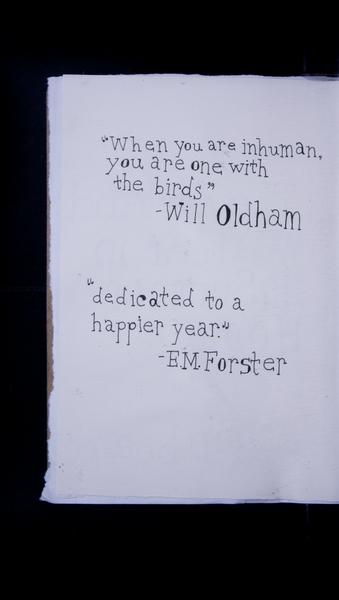 "When you are inhuman,
you are one with
the birds"
-Will Oldham
"dedicated to a
happier year."
-E.M. Forster